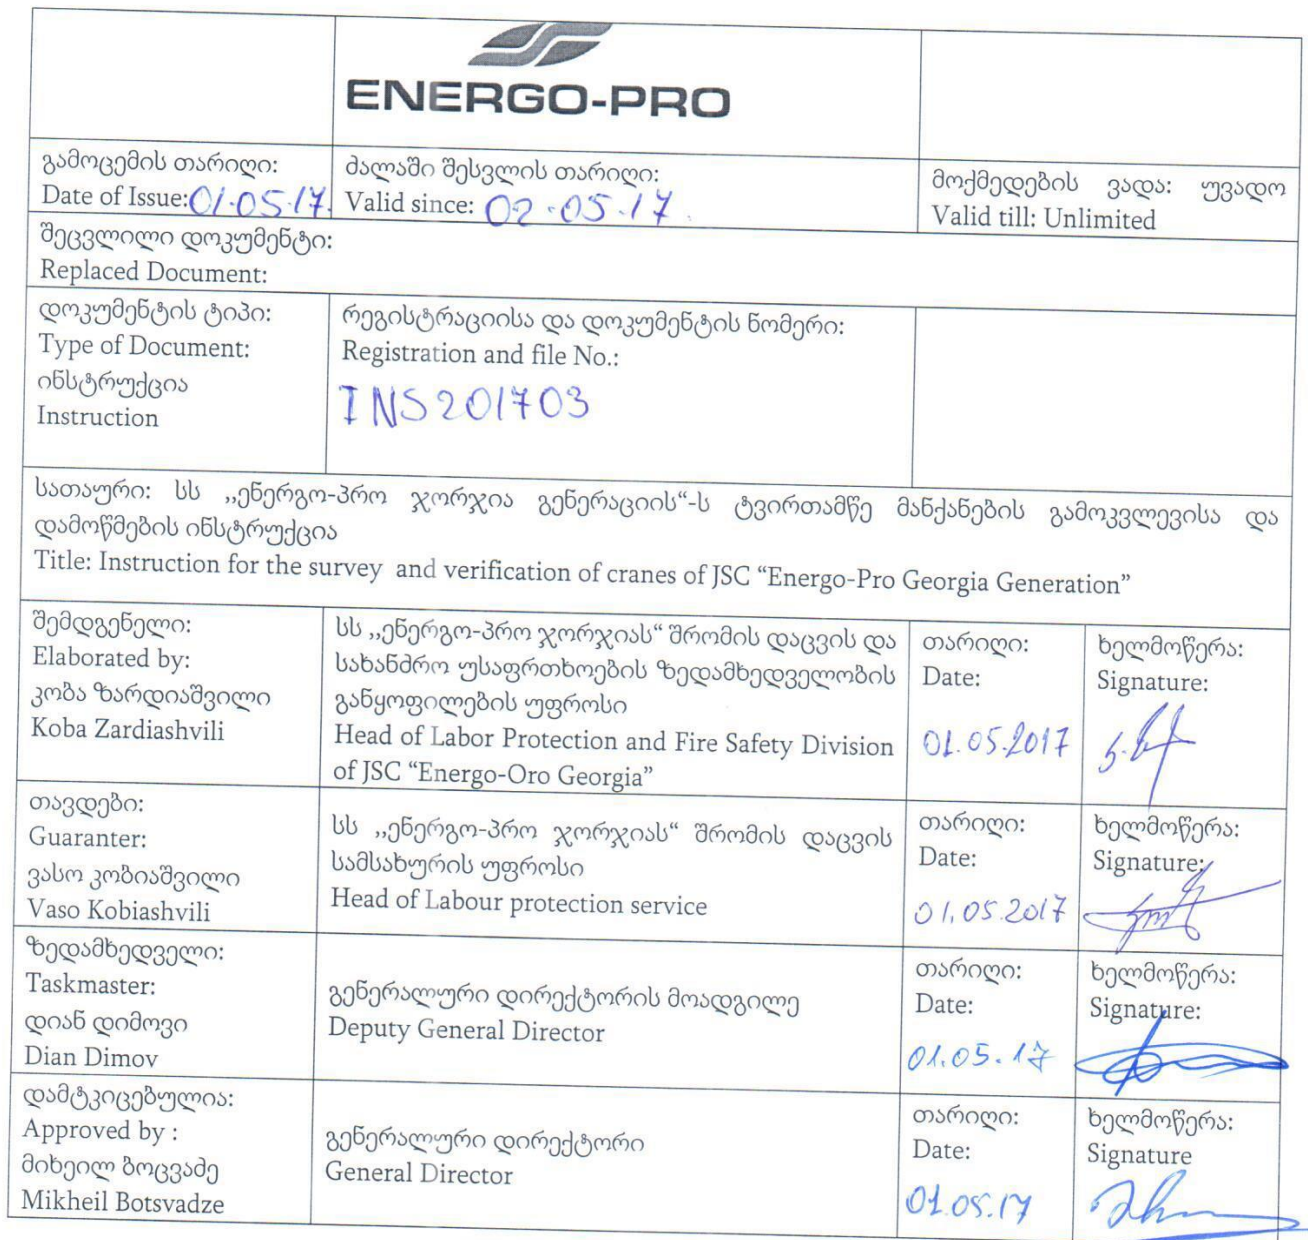 ENERGO-PRO
გამოცემის თარიღი:
Date of Issue: 01.05.17.
ძალაში შესვლის თარიღი:
Valid since: 02.05.17.
მოქმედების ვადა: უვადო
Valid till: Unlimited
შეცვლილი დოკუმენტი:
Replaced Document:
დოკუმენტის ტიპი:
Type of Document:
ინსტრუქცია
Instruction
რეგისტრაციისა და დოკუმენტის ნომერი:
Registration and file No.:
INS201703
სათაური: სს „ენერგო-პრო ჯორჯია გენერაციის“-ს ტვირთამწე მანქანების გამოკვლევისა და
დამოწმების ინსტრუქცია
Title: Instruction for the survey and verification of cranes of JSC “Energo-Pro Georgia Generation”
შემდგენელი:
Elaborated by:
კობა ზარდიაშვილი
Koba Zardiashvili
სს „ენერგო-პრო ჯორჯიას“ შრომის დაცვის და
სახანძრო უსაფრთხოების ზედამხედველობის
განყოფილების უფროსი
Head of Labor Protection and Fire Safety Division
of JSC “Energo-Oro Georgia”
თარიღი:
Date:
01.05.2017
ხელმოწერა:
Signature:
თავდები:
Guaranter:
ვასო კობიაშვილი
Vaso Kobiashvili
სს „ენერგო-პრო ჯორჯიას“ შრომის დაცვის
სამსახურის უფროსი
Head of Labour protection service
თარიღი:
Date:
01.05.2017
ხელმოწერა:
Signature:
ზედამხედველი:
Taskmaster:
დიან დიმოვი
Dian Dimov
გენერალური დირექტორის მოადგილე
Deputy General Director
თარიღი:
Date:
01.05.17
ხელმოწერა:
Signature:
დამტკიცებულია:
Approved by :
მიხეილ ბოცვაძე
Mikheil Botsvadze
გენერალური დირექტორი
General Director
თარიღი:
Date:
01.05.17
ხელმოწერა:
Signature